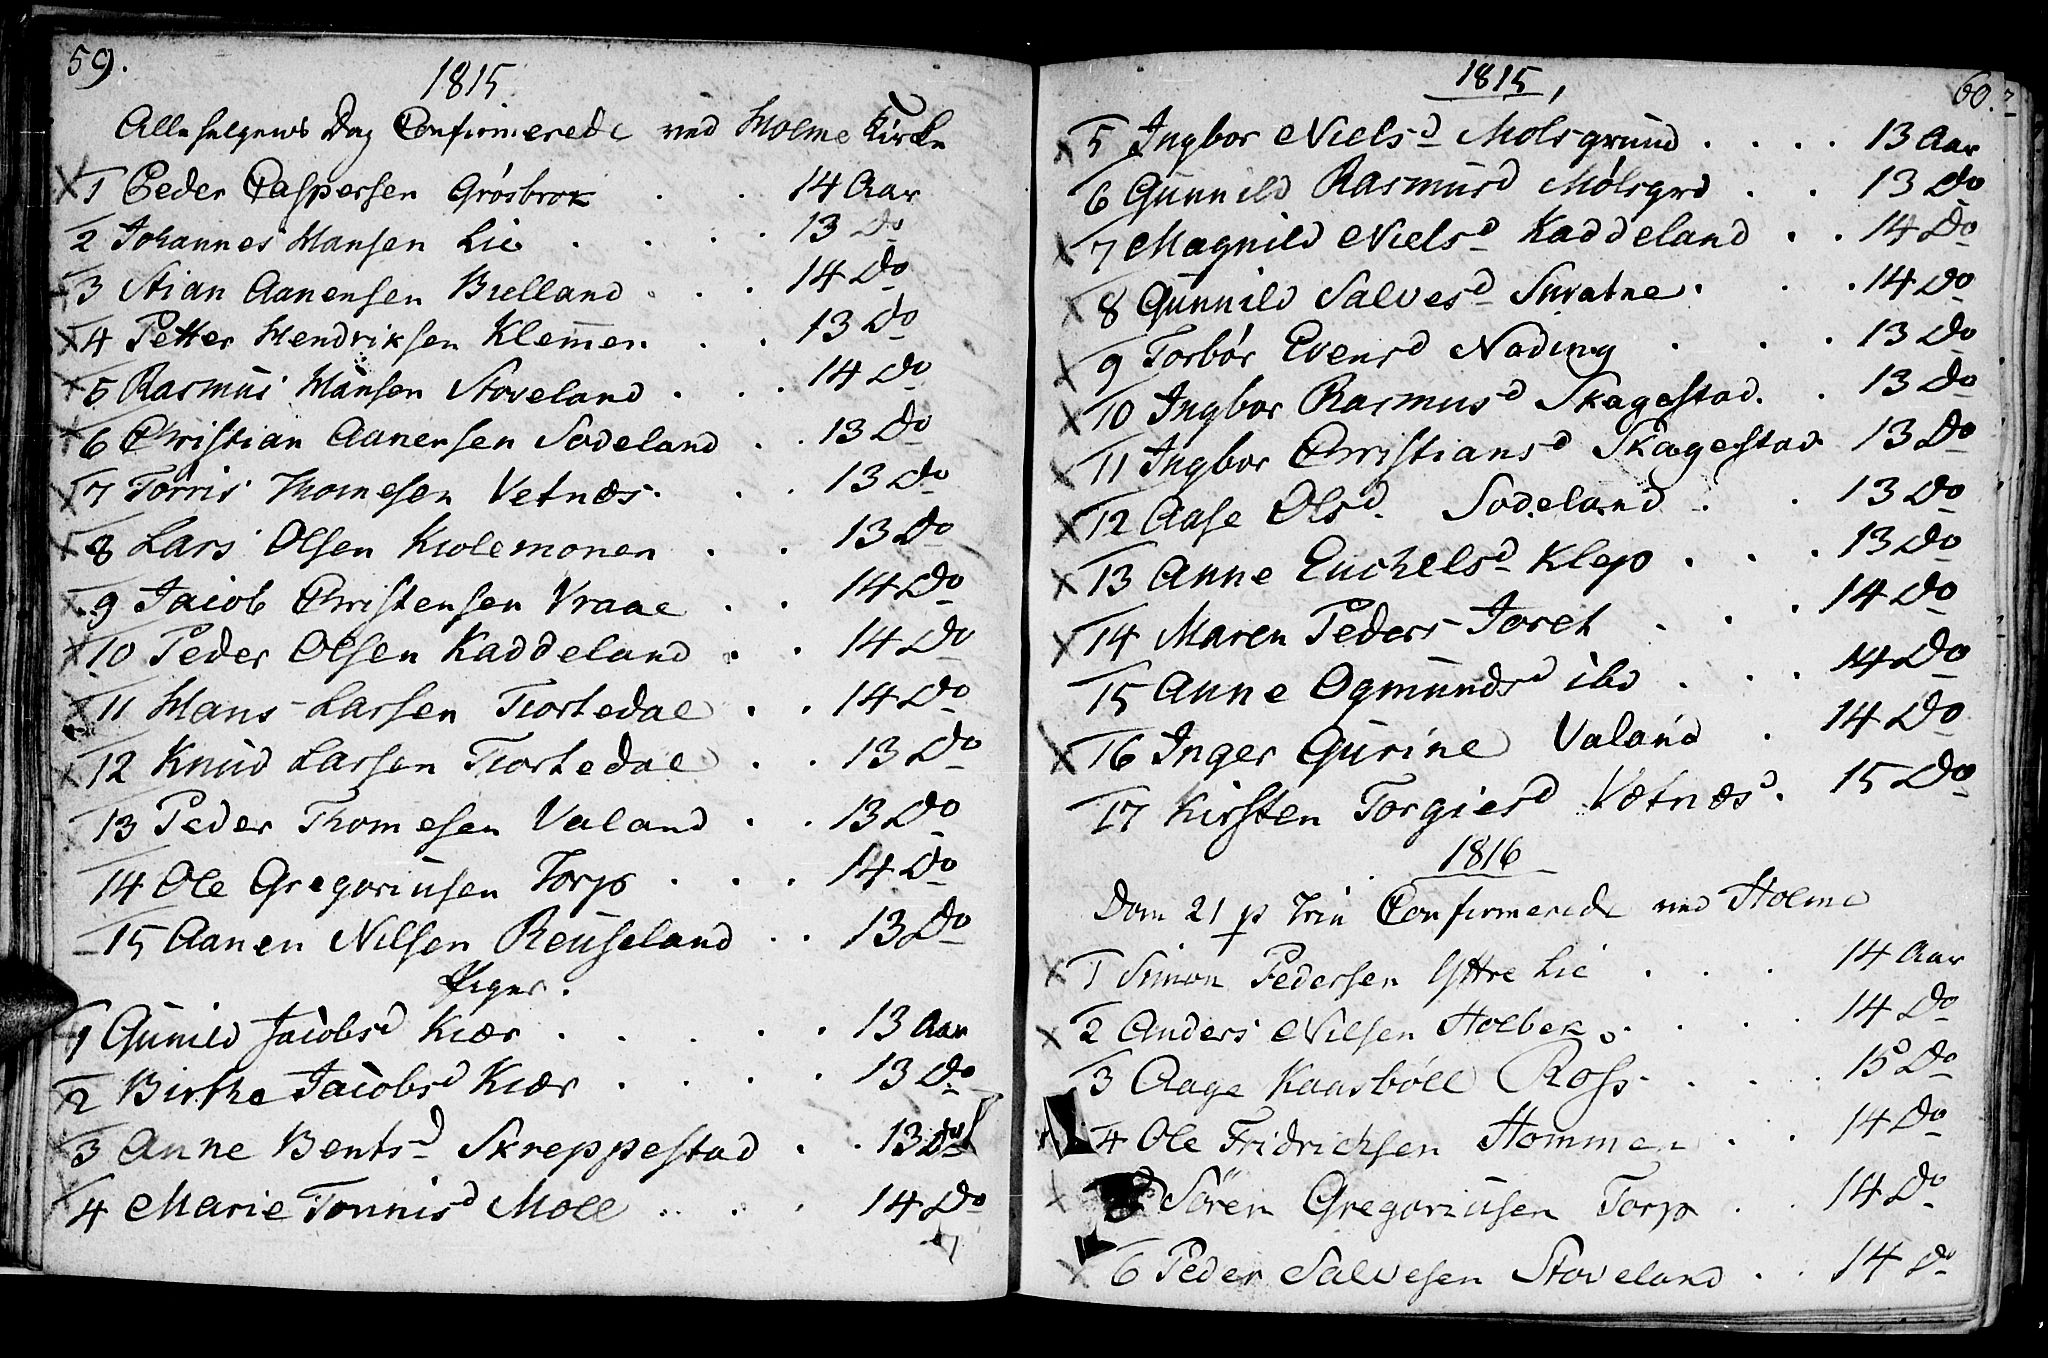 59.
1815
Alle helgens Dag Confirmerede ved Holme Kirke
1 Peder Caspersen Grøsbrok . . 14 Aar
2 Johannes Hansen Lie . . . . 13 Do
3 Stian Aanensen Bielland . . . 14 Do
4 Petter Hendriksen Klemmen . . 13 Do
5 Rasmus Hansen Stoveland . . . 14 Do
6 Christian Aanensen Sodeland . . 13 Do
7 Torris Thomesen Vetnæs . . . 13 Do
8 Lars Olsen Kiolemonen . . 13 Do
9 Jacob Christensen Vraae . . 14 Do
10 Peder Olsen Kaddeland . . 14 Do
11 Hans Larsen Tiortedal . . 14 Do
12 Knud Larsen Tiortedal . . 13 Do
13 Peder Thomesen Valand . . 13 Do
14 Ole Gregoriusen Torp . . . 14 Do
15 Aanen Nilsen Reuseland . . 13 Do
Piger.
1 Gunild Jacobsd Kiær . . . . . 13 Aar
2 Birthe Jacobsd Kiær . . . . 13 Do
3 Anne Bentsd Skreppestad . . 13 Do
4 Marie Tonnisd Moll . . . 14 Do
60.
1815,
5 Ingbor Nielsd Molsgrund . . . . 13 Aar
6 Gunnild Rasmusd Mølsgrd . . 13 Do
7 Magnild Nielsd Kaddeland . . 14 Do
8 Gunnild Salvesd Svatne . . . 14 Do
9 Torbør Evensd Noding . . . 13 Do
10 Ingbor Rasmusd Skagestad . . 13 Do
11 Ingbor Christiansd Skagestad 13 Do
12 Aase Olsd. Sodeland . . 13 Do
13 Anne Enchelsd Klep . . . 13 Do
14 Maren Peders Joret . . . 14 Do
15 Anne Ogmundsd ibd . . . 14 Do
16 Inger Gurine Valand . 14 Do
17 Kirsten Torgiesd Vetnæs . 15 Do
1816
Dom 21 p Trin Confirmerede ved Holme
1 Simon Pedersen Yttre Lie . . . 14 Aar
2 Anders Nilsen Holbek . . . . 14 Do
3 Aage Kaasbøll Ross . . . . 15 Do
4 Ole Fridrichsen Hommen . . 14 Do
Sören Gregoriusen Torp . . 14 Do
6 Peder Salvesen Stoveland . . 14 Do